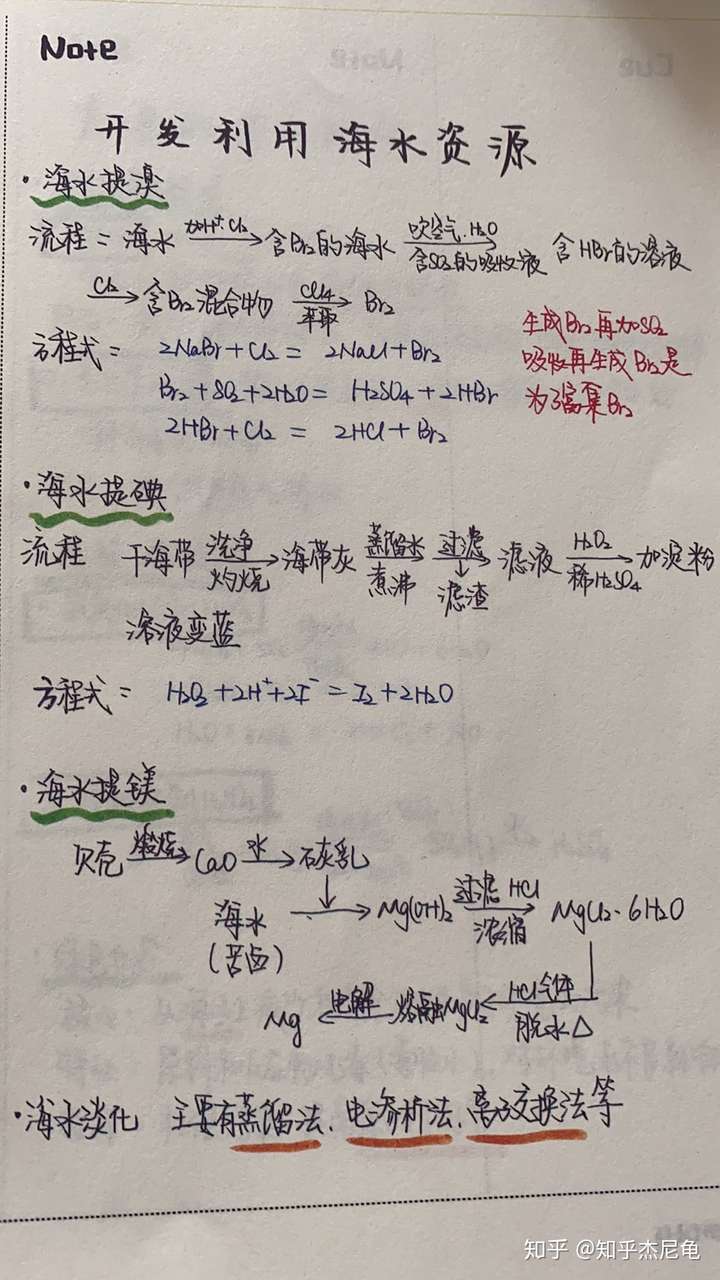 Note
开发利用海水资源
·海水提溴
流程：海水 加H⁺.Cl₂→ 含Br₂的海水 吹空气.H₂O 含SO₂的吸收液→ 含HBr的溶液
Cl₂→ 含Br₂混合物 CCl₄ 萃取→ Br₂
方程式： 2NaBr+Cl₂= 2NaCl+Br₂
Br₂+SO₂+2H₂O= H₂SO₄+2HBr
2HBr+Cl₂ = 2HCl+Br₂
生成Br₂再加SO₂
吸收再生成Br₂是
为了富集Br₂
·海水提碘
流程 干海带 洗净 灼烧→ 海带灰 蒸馏水 煮沸→ 过滤→ ↓滤渣 滤液 H₂O₂ 稀H₂SO₄→ 加淀粉
溶液变蓝
方程式： H₂O₂+2H⁺+2I⁻=I₂+2H₂O
·海水提镁
贝壳 煅烧→ CaO 水→ 石灰乳
↓
海水 → Mg(OH)₂ 过滤 HCl 浓缩→ MgCl₂·6H₂O
(苦卤)
Mg ←电解 熔融MgCl₂ ←HCl气体 脱水△
·海水淡化 主要有蒸馏法、电渗析法、离子交换法等
知乎 @知乎杰尼龟